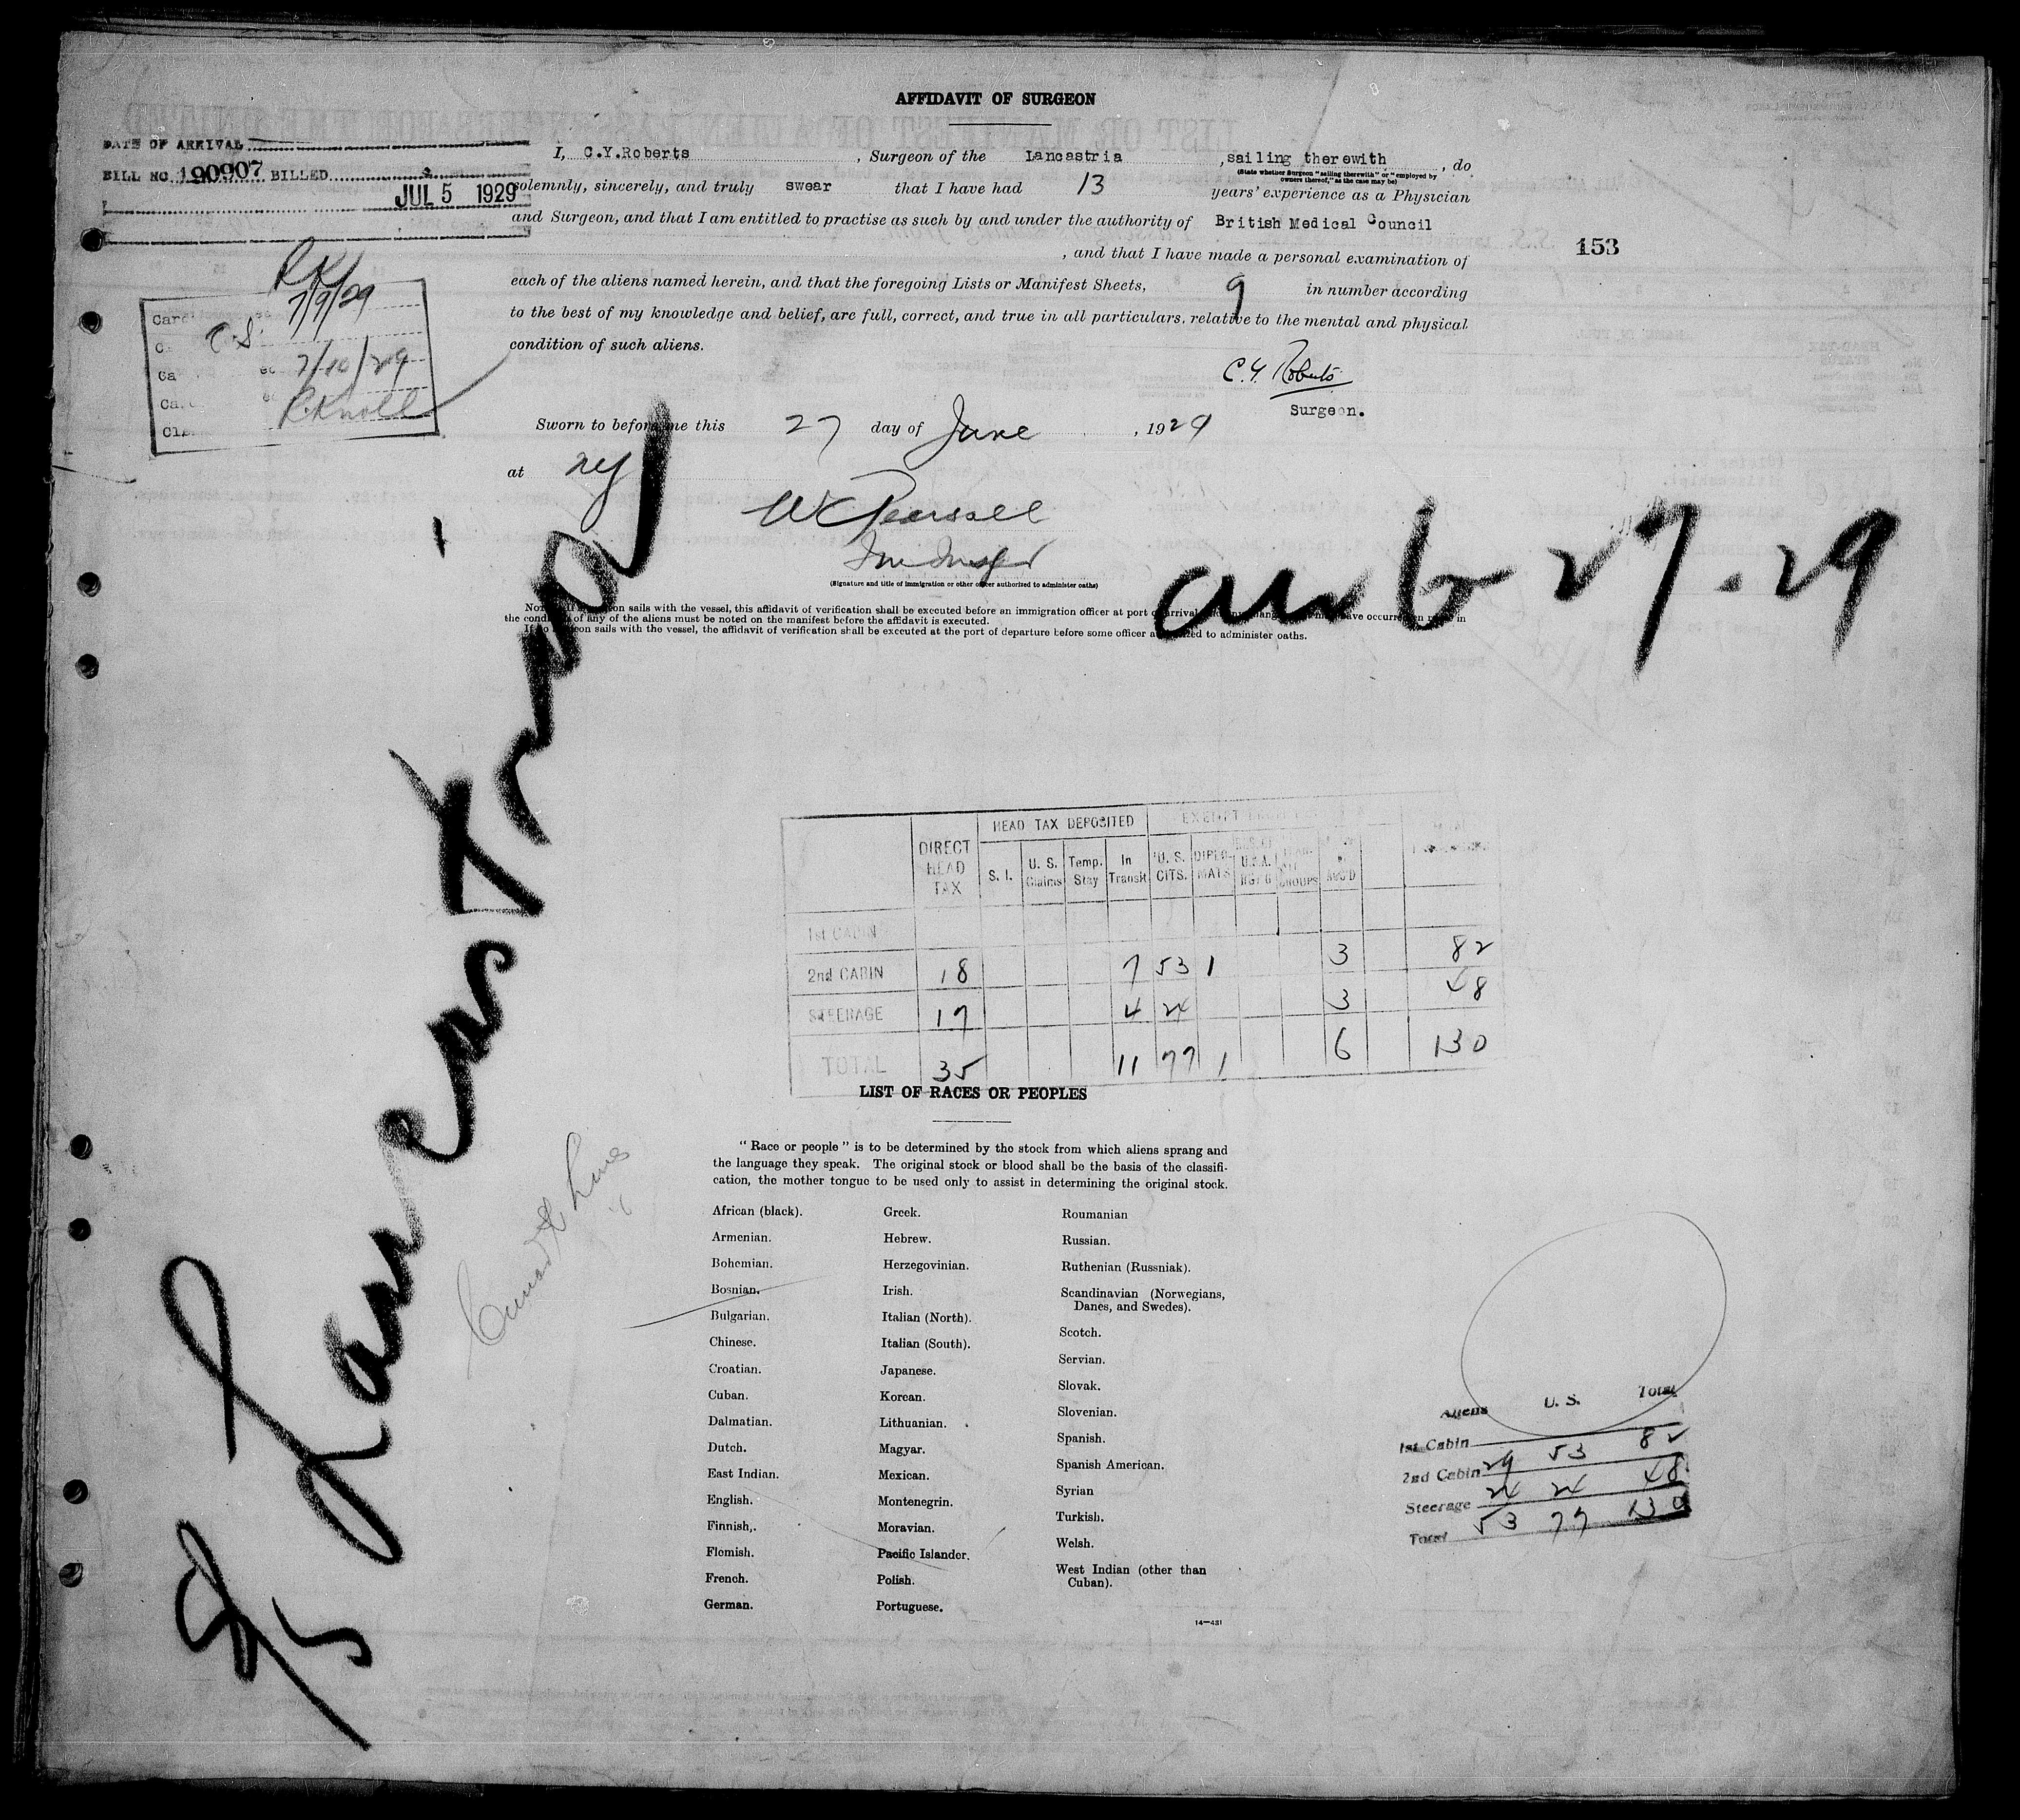 AFFIDAVIT OF SURGEON
DATE OF ARRIVAL
BILL NO. 190907 BILLED
JUL 5 1929
I, C.Y.Roberts, Surgeon of the Lancastria, sailing therewith, do
(State whether Surgeon "sailing therewith" or "employed by owners thereof," as the case may be)
solemnly, sincerely, and truly swear that I have had 13 years' experience as a Physician
and Surgeon, and that I am entitled to practise as such by and under the authority of British Medical Council
153
, and that I have made a personal examination of
each of the aliens named herein, and that the foregoing Lists or Manifest Sheets, 9 in number according
to the best of my knowledge and belief, are full, correct, and true in all particulars, relative to the mental and physical
condition of such aliens.
7/9/29
C.S.
7/10/29
R.Knoll
C.Y. Roberts
Surgeon.
Sworn to before me this 27 day of June, 1929
at NY
WC Pearsall
Imm Insp
(Signature and title of immigration or other officer authorized to administer oaths)
arr 6-27-29
sails with the vessel, this affidavit of verification shall be executed before an immigration officer at port of arrival
the condition of any of the aliens must be noted on the manifest before the affidavit is executed.
If no surgeon sails with the vessel, the affidavit of verification shall be executed at the port of departure before some officer authorized to administer oaths.
SS Lancastria
Cunard Line
DIRECT HEAD TAX
HEAD TAX DEPOSITED
S. I.
U. S. Claims
Temp. Stay
In Transit
U. S. CITS.
DIPLO-MATS
1st CABIN
2nd CABIN 18 7 53 1 3 82
STEERAGE 17 4 24 3 48
TOTAL 35 11 77 1 6 130
LIST OF RACES OR PEOPLES
"Race or people" is to be determined by the stock from which aliens sprang and
the language they speak. The original stock or blood shall be the basis of the classifi-
cation, the mother tongue to be used only to assist in determining the original stock.
African (black).
Armenian.
Bohemian.
Bosnian.
Bulgarian.
Chinese.
Croatian.
Cuban.
Dalmatian.
Dutch.
East Indian.
English.
Finnish.
Flemish.
French.
German.
Greek.
Hebrew.
Herzegovinian.
Irish.
Italian (North).
Italian (South).
Japanese.
Korean.
Lithuanian.
Magyar.
Mexican.
Montenegrin.
Moravian.
Pacific Islander.
Polish.
Portuguese.
Roumanian
Russian.
Ruthenian (Russniak).
Scandinavian (Norwegians,
Danes, and Swedes).
Scotch.
Servian.
Slovak.
Slovenian.
Spanish.
Spanish American.
Syrian
Turkish.
Welsh.
West Indian (other than
Cuban).
14-431
Aliens U. S. Total
1st Cabin
2nd Cabin 29 53 82
Steerage 24 24 48
Total 53 77 130